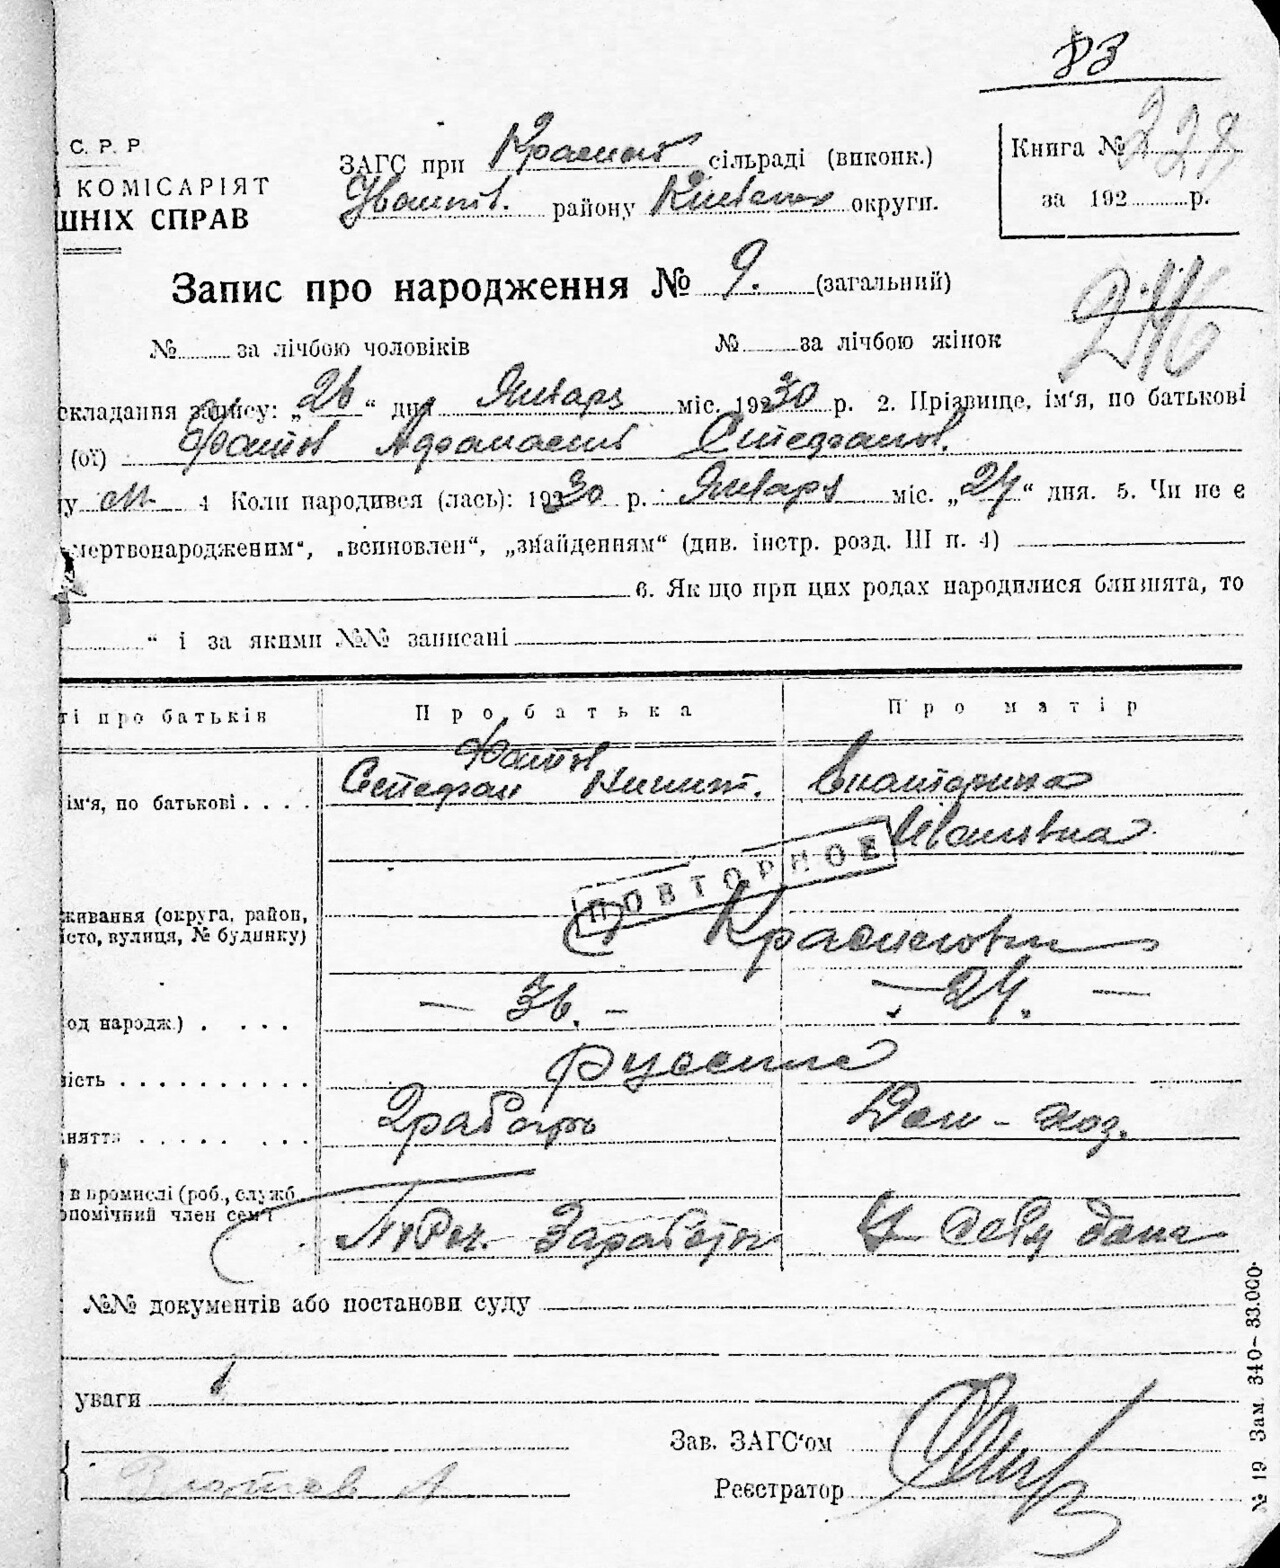 83
С. Р. Р
КОМІСАРІЯТ
ШНІХ СПРАВ
ЗАГС при Краснот сільраді (виконк.)
району округи.
Книга № 228
за 192 р.
Запис про народження № 9. (загальний)
246
№ за лічбою чоловіків
№ за лічбою жінок
складання запису: „26“ дня Январь міс. 192 30 р. 2. Прізвище, ім'я, по батькові
(ої) Афанасий Стефанов.
у м 4 Коли народився (лась): 192 30 р. Январь міс. „24“ дня. 5. Чи не є
мертвонародженим“, „всиновлен“, „знайденням“ (див. інстр. розд. III п. 4)
6. Якщо при цих родах народилися близнята, то
“ і за якими №№ записані
ті про батьків
Про батька
Про матір
ім'я, по батькові
Стефан Никит.
Екатерина
Ивановна
ПОВТОРНОЕ
живання (округа, район,
істо, вулиця, № будинку)
од народж.)
— 36. —
— 24. —
ість
русские
няття
Дом-хоз.
в промислі (роб., служб
опомічний член сем'ї
№№ документів або постанови суду
уваги
Зав. ЗАГС'ом
Реєстратор
№ 19 Зам. 340—33.000